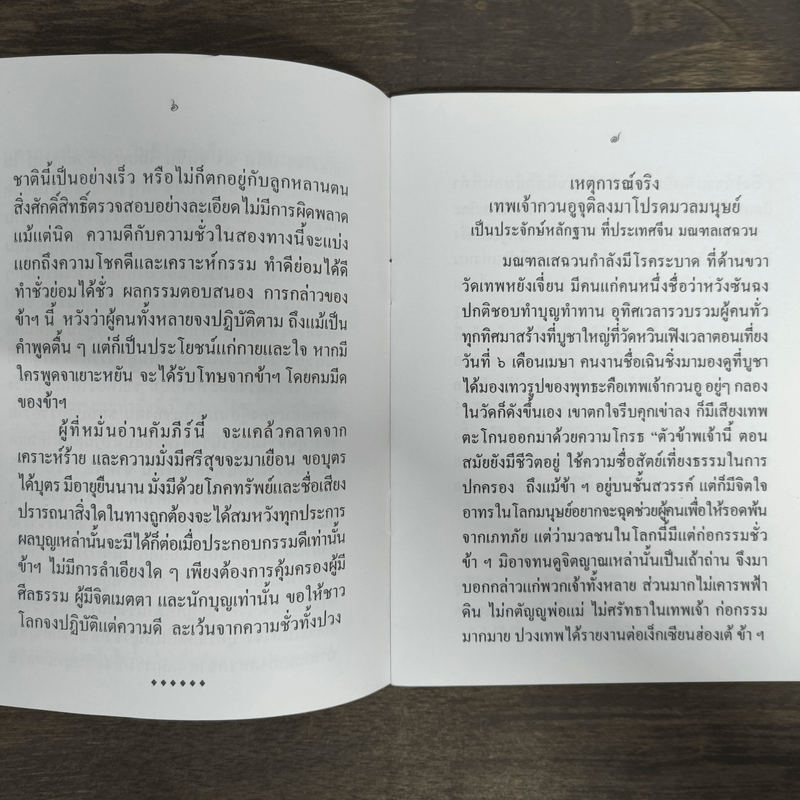 ๖
ชาตินี้เป็นอย่างเร็ว หรือไม่ก็ตกอยู่กับลูกหลานตน
สิ่งศักดิ์สิทธิ์ตรวจสอบอย่างละเอียดไม่มีการผิดพลาด
แม้แต่นิด ความดีกับความชั่วในสองทางนี้จะแบ่ง
แยกถึงความโชคดีและเคราะห์กรรม ทำดีย่อมได้ดี
ทำชั่วย่อมได้ชั่ว ผลกรรมตอบสนอง การกล่าวของ
ข้าฯ นี้ หวังว่าผู้คนทั้งหลายจงปฏิบัติตาม ถึงแม้เป็น
คำพูดตื้น ๆ แต่ก็เป็นประโยชน์แก่กายและใจ หากมี
ใครพูดจาเยาะหยัน จะได้รับโทษจากข้าฯ โดยคมมีด
ของข้าฯ
ผู้ที่หมั่นอ่านคัมภีร์นี้ จะแคล้วคลาดจาก
เคราะห์ร้าย และความมั่งมีศรีสุขจะมาเยือน ขอบุตร
ได้บุตร มีอายุยืนนาน มั่งมีด้วยโภคทรัพย์และชื่อเสียง
ปรารถนาสิ่งใดในทางถูกต้องจะได้สมหวังทุกประการ
ผลบุญเหล่านั้นจะมีได้ก็ต่อเมื่อประกอบกรรมดีเท่านั้น
ข้าฯ ไม่มีการลำเอียงใด ๆ เพียงต้องการคุ้มครองผู้มี
ศีลธรรม ผู้มีจิตเมตตา และนักบุญเท่านั้น ขอให้ชาว
โลกจงปฏิบัติแต่ความดี ละเว้นจากความชั่วทั้งปวง
♦♦♦♦♦♦
๗
เหตุการณ์จริง
เทพเจ้ากวนอูจุติลงมาโปรดมวลมนุษย์
เป็นประจักษ์หลักฐาน ที่ประเทศจีน มณฑลเสฉวน
มณฑลเสฉวนกำลังมีโรคระบาด ที่ด้านขวา
วัดเทพหยังเจี่ยน มีคนแก่คนหนึ่งชื่อว่าหวังซันฉง
ปกติชอบทำบุญทำทาน อุทิศเวลารวบรวมผู้คนทั่ว
ทุกทิศมาสร้างที่บูชาใหญ่ที่วัดหวินเฟิงเวลาตอนเที่ยง
วันที่ ๖ เดือนเมษา คนงานชื่อเฉินชิ่งมามองดูที่บูชา
ได้มองเทวรูปของพุทธะคือเทพเจ้ากวนอู อยู่ๆ กลอง
ในวัดก็ดังขึ้นเอง เขาตกใจรีบคุกเข่าลง ก็มีเสียงเทพ
ตะโกนออกมาด้วยความโกรธ “ตัวข้าพเจ้านี้ ตอน
สมัยยังมีชีวิตอยู่ ใช้ความซื่อสัตย์เที่ยงธรรมในการ
ปกครอง ถึงแม้ข้า ฯ อยู่บนชั้นสวรรค์ แต่ก็มีจิตใจ
อาทรในโลกมนุษย์อยากจะฉุดช่วยผู้คนเพื่อให้รอดพ้น
จากเภทภัย แต่ว่ามวลชนในโลกนี้มีแต่ก่อกรรมชั่ว
ข้า ฯ มิอาจทนดูจิตญาณเหล่านั้นเป็นเถ้าถ่าน จึงมา
บอกกล่าวแก่พวกเจ้าทั้งหลาย ส่วนมากไม่เคารพฟ้า
ดิน ไม่กตัญญูพ่อแม่ ไม่ศรัทธาในเทพเจ้า ก่อกรรม
มากมาย ปวงเทพได้รายงานต่อเง็กเซียนฮ่องเต้ ข้า ฯ